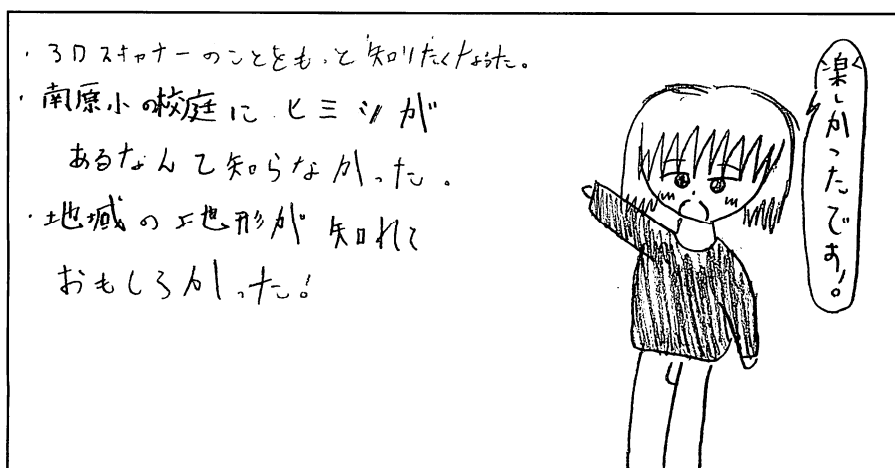 ・3Dスキャナーのことをもっと知りたくなった。
・南原小の校庭にヒミツが
あるなんて知らなかった。
・地域の地形が知れて
おもしろかった!
楽しかったです!。